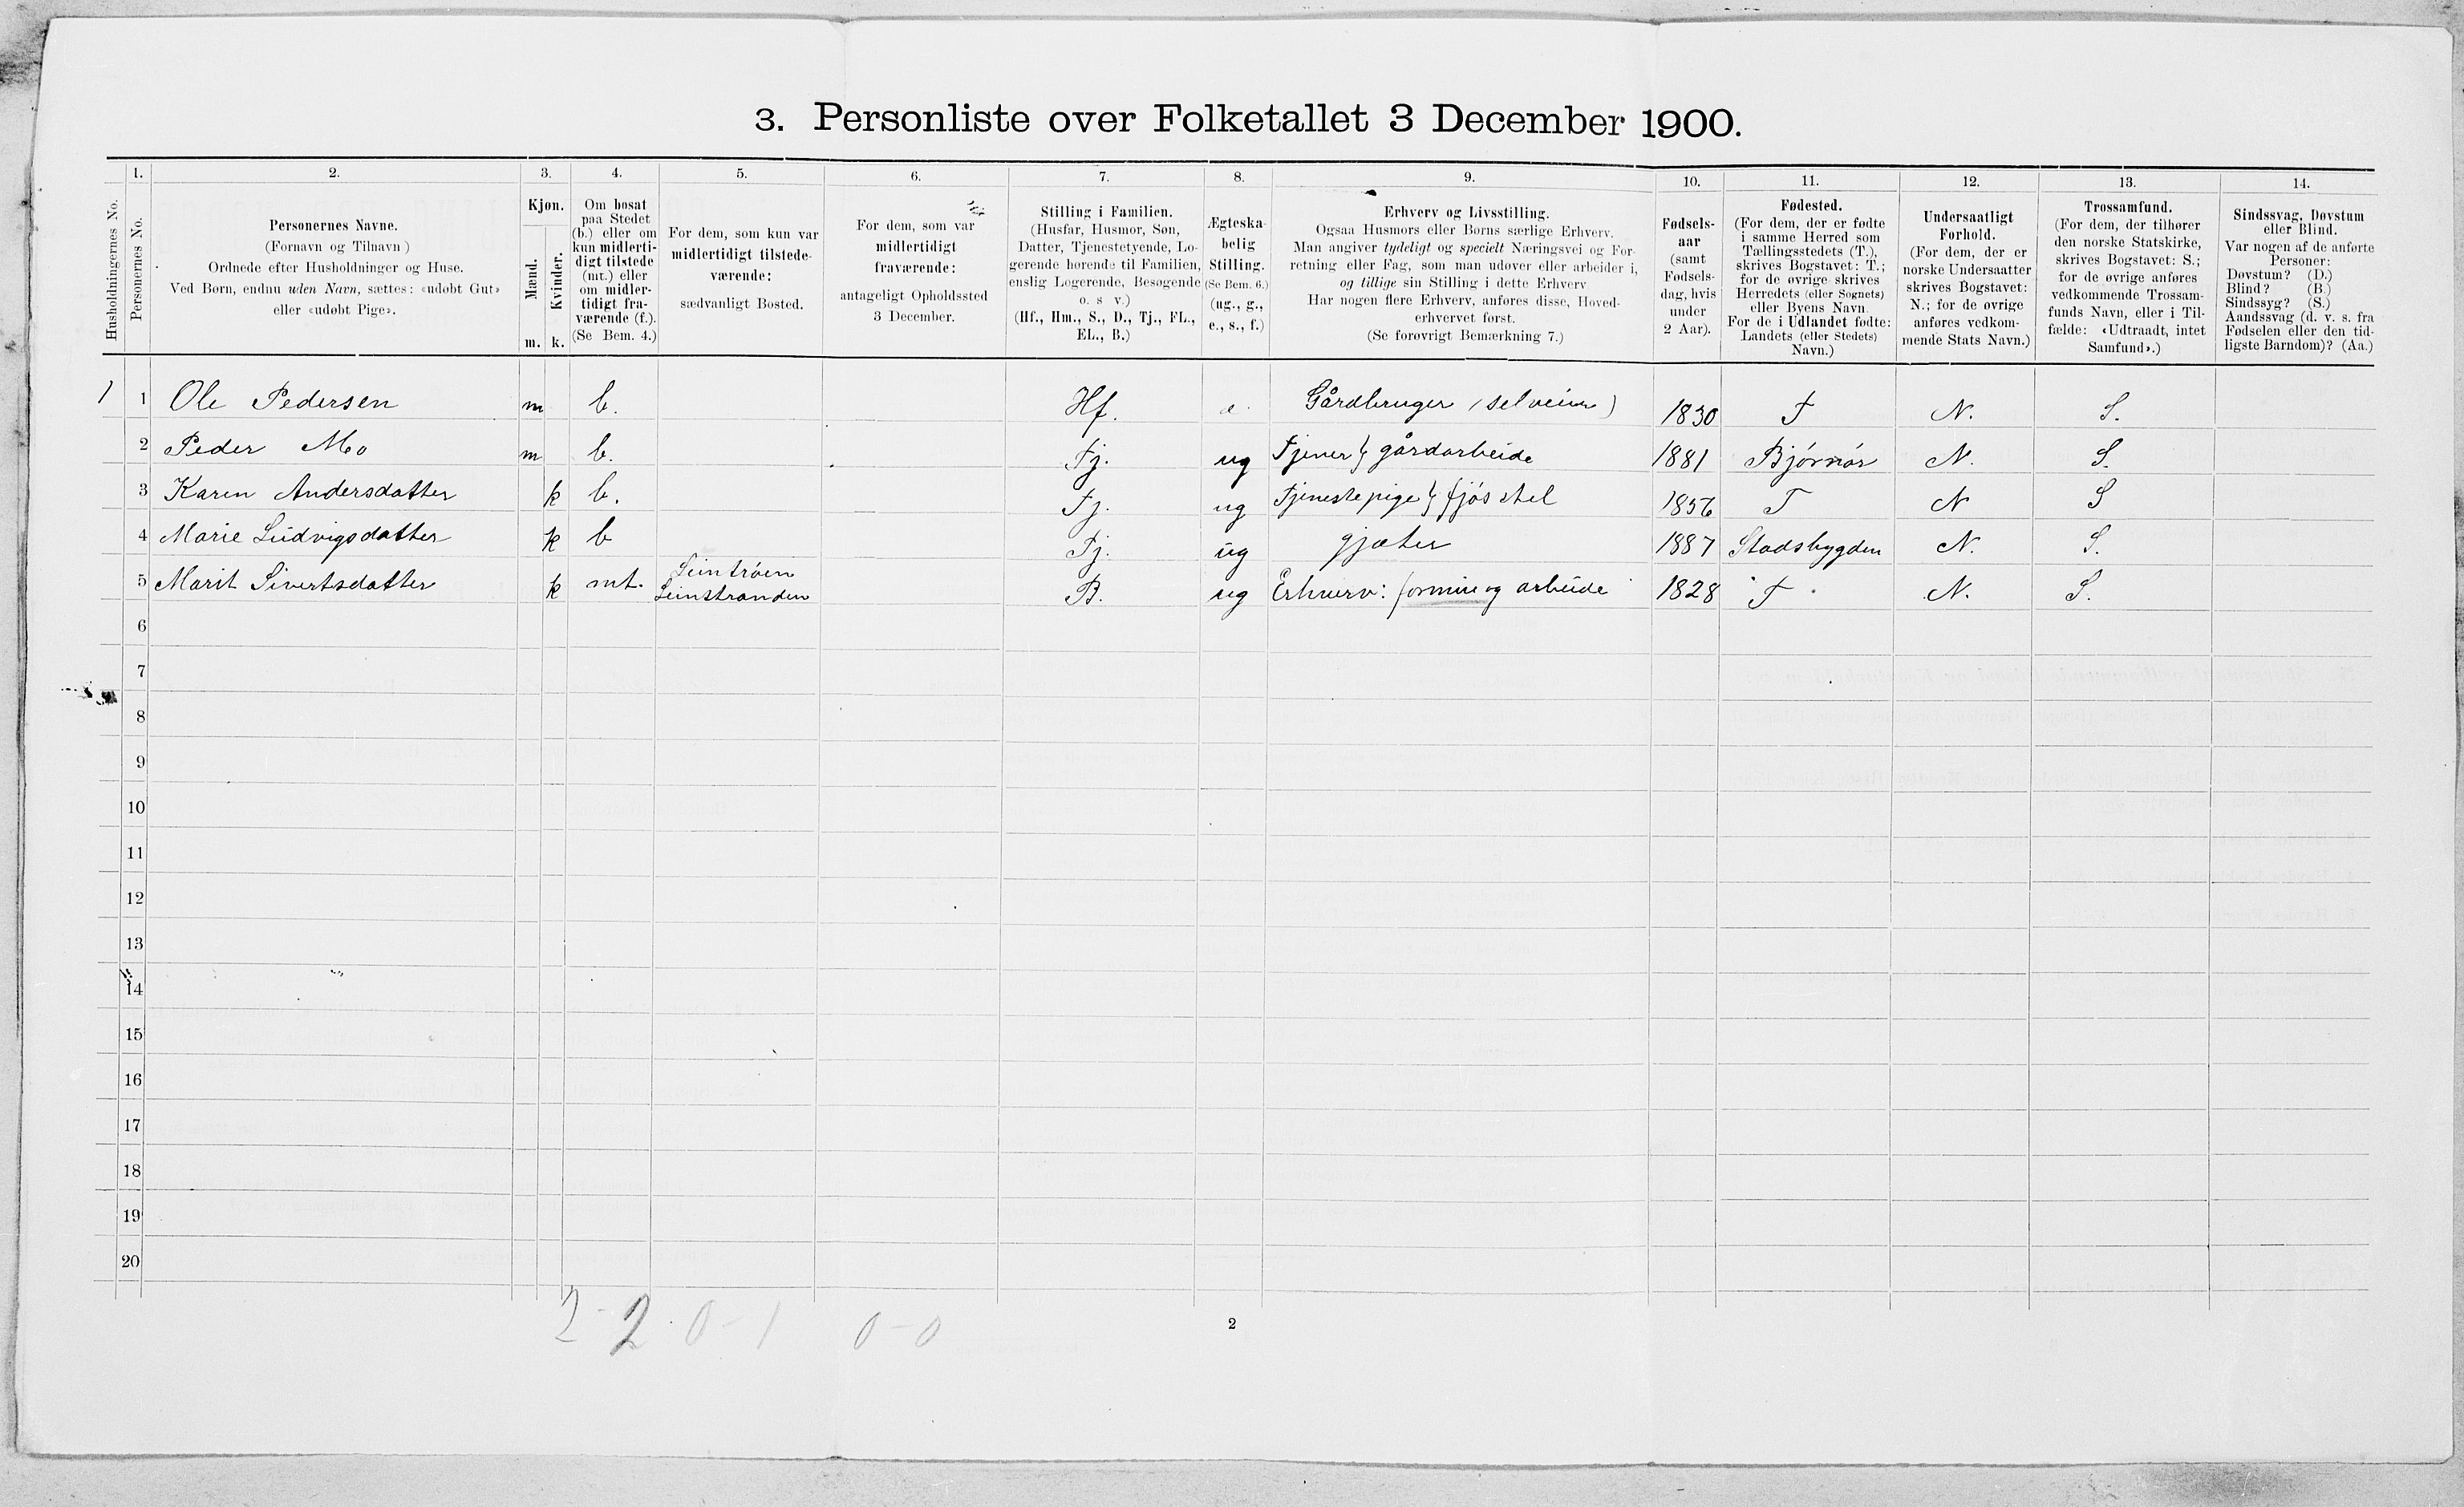 3. Personliste over Folketallet 3 December 1900.
1. 2. 3. 4. 5. 6. 7. 8. 9. 10. 11. 12. 13. 14.
Husholdningernes No.
Personernes No.
Personernes Navne.
(Fornavn og Tilnavn )
Ordnede efter Husholdninger og Huse.
Ved Børn, endnu uden Navn, sættes: «udøbt Gut»
eller «udøbt Pige».
Kjøn.
Mænd.
Kvinder.
m. k.
Om bosat
paa Stedet
(b.) eller om
kun midlerti-
digt tilstede
(mt.) eller
om midler-
tidigt fra-
værende (f.).
(Se Bem. 4.)
For dem, som kun var
midlertidigt tilstede-
værende:
sædvanligt Bosted.
For dem, som var
midlertidigt
fraværende:
antageligt Opholdssted
3 December.
Stilling i Familien.
(Husfar, Husmor, Søn,
Datter, Tjenestetyende, Lo-
gerende hørende til Familien,
enslig Logerende, Besøgende
o. s v.)
(Hf., Hm., S., D., Tj., FL.,
EL., B.)
Ægteska-
belig
Stilling.
(Se Bem. 6.)
(ug., g.,
e., s., f.)
Erhverv og Livsstilling.
Ogsaa Husmors eller Børns særlige Erhverv.
Man angiver tydeligt og specielt Næringsvei og For-
retning eller Fag, som man udøver eller arbeider i,
og tillige sin Stilling i dette Erhverv
Har nogen flere Erhverv, anføres disse, Hoved-
erhvervet først.
(Se forøvrigt Bemærkning 7.)
Fødsels-
aar
(samt
Fødsels-
dag, hvis
under
2 Aar).
Fødested.
(For dem, der er fødte
i samme Herred som
Tællingsstedets (T.),
skrives Bogstavet: T.;
for de øvrige skrives
Herredets (eller Sognets)
eller Byens Navn.
For de i Udlandet fødte:
Landets (eller Stedets)
Navn.)
Undersaatligt
Forhold.
(For dem, der er
norske Undersaatter
skrives Bogstavet:
N.; for de øvrige
anføres vedkom-
mende Stats Navn.)
Trossamfund.
(For dem, der tilhører
den norske Statskirke,
skrives Bogstavet: S.;
for de øvrige anføres
vedkommende Trossam-
funds Navn, eller i Til-
fælde: «Udtraadt, intet
Samfund».)
Sindssvag, Døvstum
eller Blind.
Var nogen af de anførte
Personer:
Døvstum? (D.)
Blind? (B.)
Sindssyg? (S.)
Aandssvag (d. v. s. fra
Fødselen eller den tid-
ligste Barndom)? (Aa.)
1 1 Ole Pedersen m b. Hf. e. Gårdbruger (selveier) 1830 T N. S.
2 Peder Mo m b. Tj. ug Tjener } gårdarbeide 1881 Bjørnør N. S.
3 Karen Andersdatter k b. Tj. ug Tjenestepige } fjøsstel 1856 T N S
4 Marie Ludvigsdatter k b Tj. ug gjæter 1887 Stadsbygden N. S.
5 Marit Sivertsdatter k mt. Leinstranden B. ug Erhverv: arbeide 1828 T N. S.
6
7
8
9
10
11
12
13
14
15
16
17
18
19
20
2 - 2 0 - 1 0 - 0
2